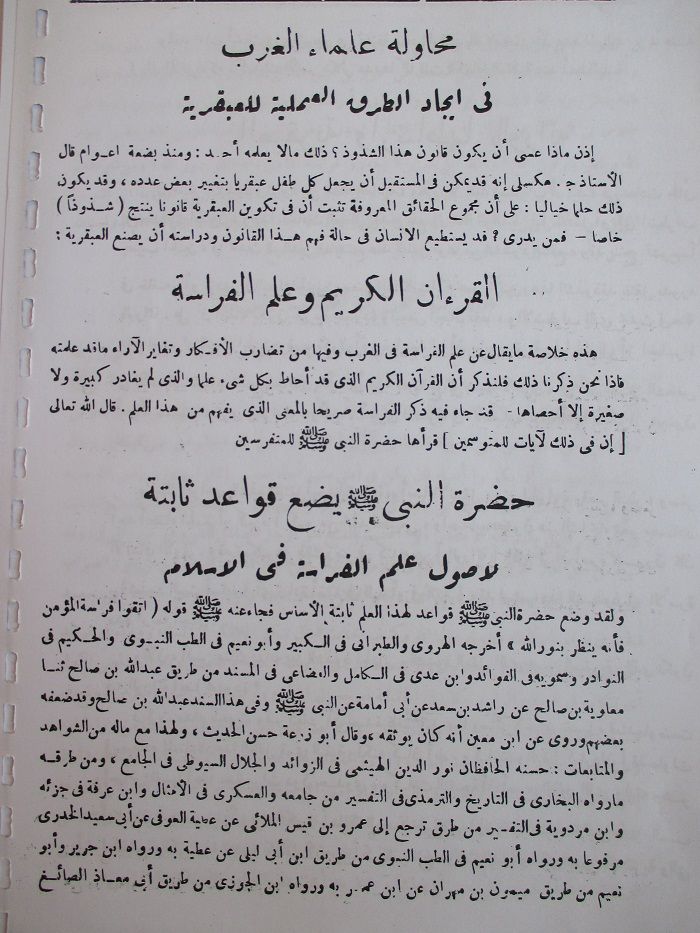 محاولة علماء الغرب
فى ايجاد الطرق العملية للعبقرية
إذن ماذا عسى أن يكون قانون هذا الشذوذ ؟ ذلك مالا يعلمه أحد : ومنذ بضعة اعوام قال
الأستاذ ج . هكسلى إنه قديمكن فى المستقبل أن يجعل كل طفل عبقريا بتغيير بعض غدده ، وقد يكون
ذلك حلما خياليا : على أن مجموع الحقائق المعروفة تثبت أن فى تكوين العبقرية قانونا ينتج ( شذوذاً )
خاصا — فمن يدرى ? قد يستطيع الانسان فى حالة فهم هذا القانون ودراسته أن يصنع العبقرية :
القرءان الكريم وعلم الفراسة
هذه خلاصة مايقال عن علم الفراسة فى الغرب وفيها من تضارب الأفكار وتغاير الآراء ماقد علمته
فاذا نحن ذكرنا ذلك فلنذكر أن القرآن الكريم الذى قد أحاط بكل شىء علما والذى لم يغادر كبيرة ولا
صغيرة إلا أحصاها - قد جاء فيه ذكر الفراسة صريحا بالمعنى الذى يفهم من هذا العلم . قال الله تعالى
[ إن فى ذلك لآيات للمتوسمين ] قرأها حضرة النبى ﷺ للمتفرسين
حضرة النبى ﷺ يضع قواعد ثابتة
لاصول علم الفراسة فى الاسلام
ولقد وضع حضرة النبى ﷺ قواعد لهذا العلم ثابتة الأساس فجاء عنه ﷺ قوله ( اتقوا فراسة المؤمن
فأنه ينظر بنور الله » أخرجه الهروى والطبرانى فى الكبير وأبو نعيم فى الطب النبوى والحكيم فى
النوادر وسمويه فى الفوائد وابن عدى فى الكامل والقضاعى فى المسند من طريق عبدالله بن صالح ثنا
معاوية بن صالح عن راشد بن سعد عن أبى أمامة عن النبى ﷺ وفى هذا السند عبدالله بن صالح وقد ضعفه
بعضهم وروى عن ابن معين أنه كان يوثقه ، وقال أبو زرعة حسن الحديث ، ولهذا مع ماله من الشواهد
والمتابعات : حسنه الحافظان نور الدين الهيثمى فى الزوائد والجلال السيوطى فى الجامع ، ومن طرقه
مارواه البخارى فى التاريخ والترمذى فى التفسير من جامعه والعسكرى فى الأمثال وابن عرفة فى جزئه
وابن مردوية فى التفسير من طرق ترجع إلى عمرو بن قيس الملائى عن عطية العوفى عن أبى سعيد الخدرى
مرفوعا به ورواه أبو نعيم فى الطب النبوى من طريق ابن أبى ليلى عن عطية به ورواه ابن جرير وأبو
نعيم من طريق ميمون بن مهران عن ابن عمر به ورواه ابن الجوزى من طريق أبى معاذ الصائغ